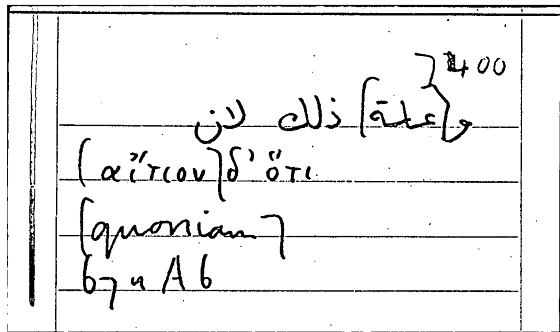 ʒ 400
و[علة] ذلك لان
[αἴτιον] δ' ὅτι
[quoniam]
67 u A 6